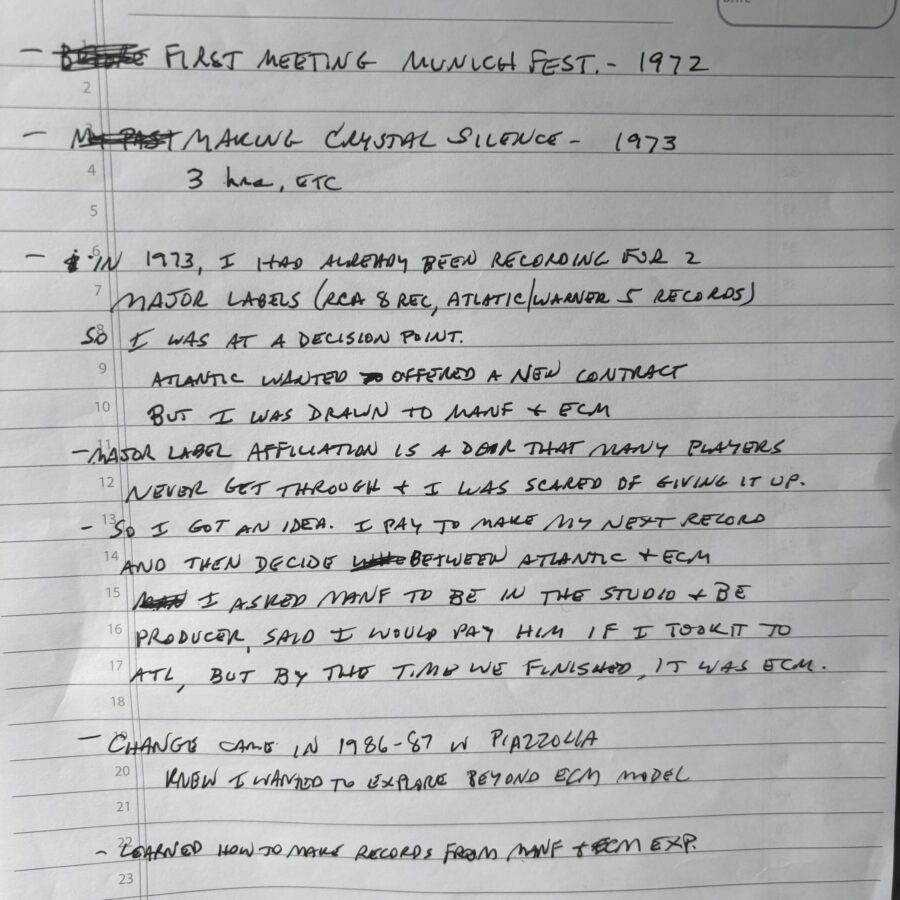 DATE
- FIRST MEETING MUNICH FEST. - 1972
2
- MY PAST MAKING CRYSTAL SILENCE - 1973
4 3 hrs, ETC
5
6 - IN 1973, I HAD ALREADY BEEN RECORDING FOR 2
7 MAJOR LABELS (RCA 8 REC, ATLATIC/WARNER 5 RECORDS)
8 SO I WAS AT A DECISION POINT.
9 ATLANTIC WANTED OFFERED A NEW CONTRACT
10 BUT I WAS DRAWN TO MANF + ECM
11 - MAJOR LABEL AFFILIATION IS A DOOR THAT MANY PLAYERS
12 NEVER GET THROUGH + I WAS SCARED OF GIVING IT UP.
13 - SO I GOT AN IDEA. I PAY TO MAKE MY NEXT RECORD
14 AND THEN DECIDE BETWEEN ATLANTIC + ECM
15 I ASKED MANF TO BE IN THE STUDIO + BE
16 PRODUCER, SAID I WOULD PAY HIM IF I TOOK IT TO
17 ATL, BUT BY THE TIME WE FINISHED, IT WAS ECM.
18
19 - CHANGE CAME IN 1986-87 W PIAZZOLLA
20 KNEW I WANTED TO EXPLORE BEYOND ECM MODEL
21
22 - LEARNED HOW TO MAKE RECORDS FROM MANF + ECM EXP.
23